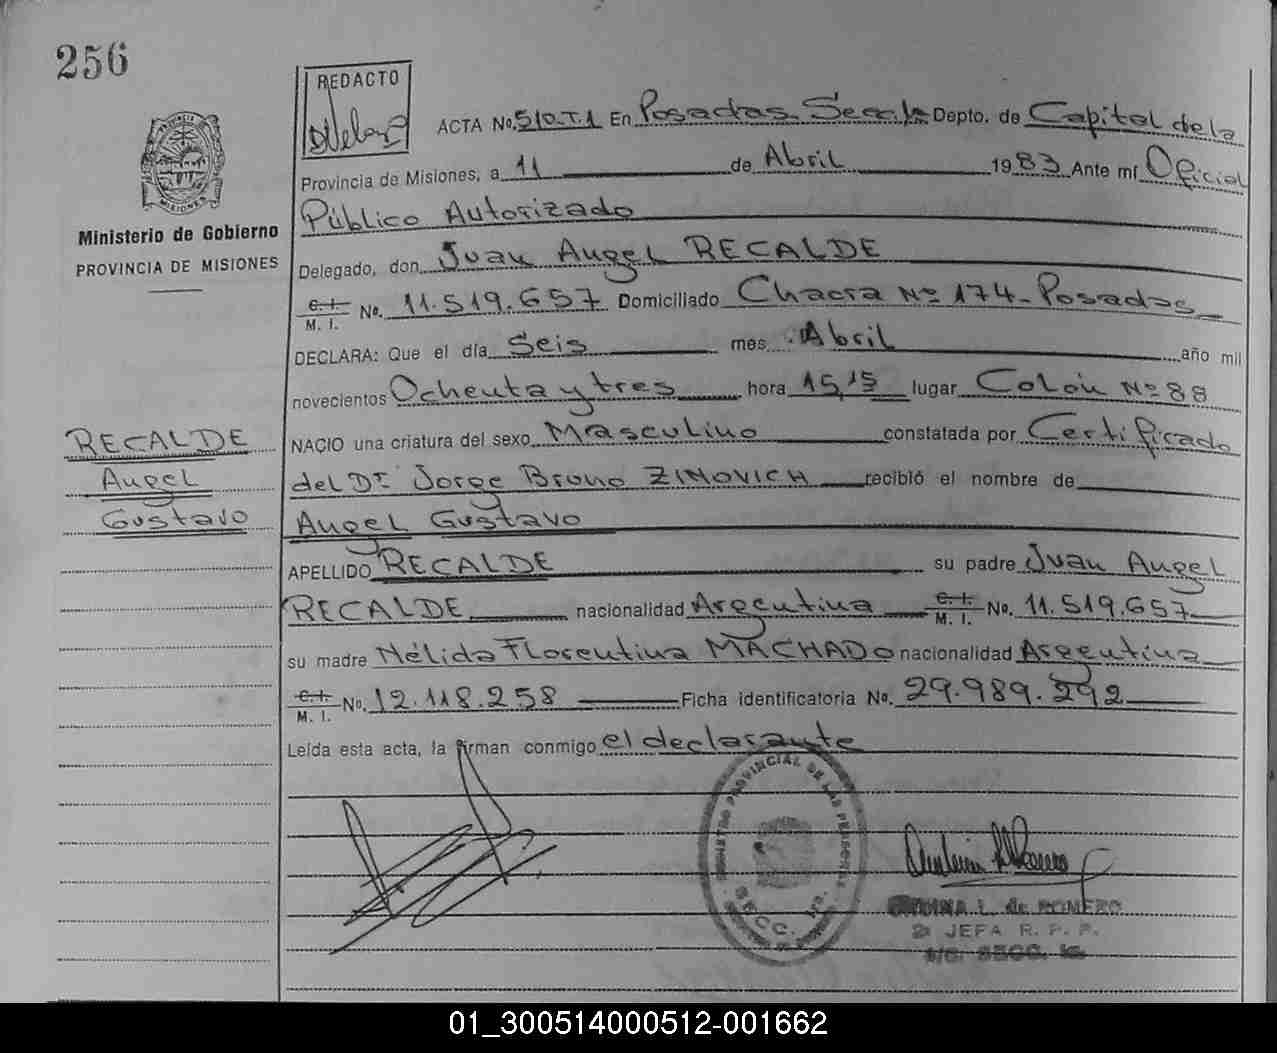 256
REDACTO
ACTA No. 510-T.1 En Posadas Secc. 1a Depto. de Capital de la
Provincia de Misiones, a 11 de Abril 1983 Ante mí Oficial
Público Autorizado
PROVINCIA DE
MISIONES
Ministerio de Gobierno
PROVINCIA DE MISIONES
Delegado, don Juan Angel RECALDE
C. I.
M. I. No. 11.519.657 Domiciliado Chacra Nº 174-Posadas
DECLARA: Que el día Seis mes Abril año mil
novecientos Ochenta y tres hora 15,15 lugar Colón Nº 88
RECALDE
Angel
Gustavo
NACIO una criatura del sexo Masculino constatada por Certificado
del Dr Jorge Bruno ZINOVICH recibió el nombre de
Angel Gustavo
APELLIDO RECALDE su padre Juan Angel
RECALDE nacionalidad Argentina C. I. M. I. No. 11.519.657
su madre Nélida Florentina MACHADO nacionalidad Argentina
C. I.
M. I. No. 12.118.258 Ficha identificatoria No. 29.989.292
Leída esta acta, la firman conmigo el declarante
REGISTRO PROVINCIAL DE LAS PERSONAS
SECC. 1ra.
L. de ROMERO
2a JEFA R. P. P.
A/C. SECC. 1a.
01_300514000512-001662